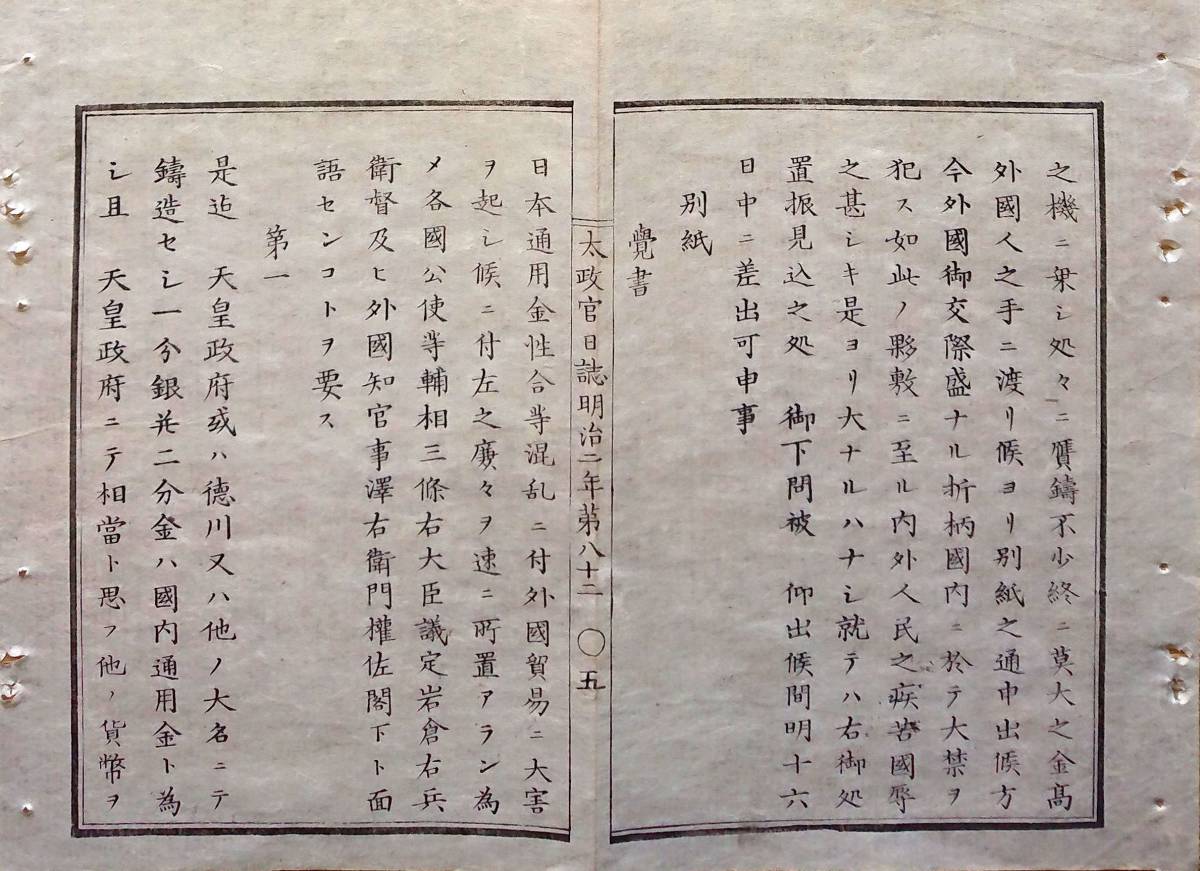 之機ニ乗シ処々ニ贋鋳不少終ニ莫大之金髙
外國人之手ニ渡リ候ヨリ別紙之通申出候方
今外國御交際盛ナル折柄國内ニ於テ大禁ヲ
犯ス如此ノ夥敷ニ至ル内外人民之疾苦國辱
之甚シキ是ヨリ大ナルハナシ就テハ右御処
置振見込之処　御下問被　仰出候間明十六
日中ニ差出可申事
別紙
覺書
太政官日誌明治二年第八十二　〇五
日本通用金性合等混乱ニ付外國貿易ニ大害
ヲ起シ候ニ付左之廉々ヲ速ニ所置アラン為
メ各國公使等輔相三條右大臣議定岩倉右兵
衛督及ヒ外國知官事澤右衛門權佐閣下ト面
語センコトヲ要ス
第一
是迠　天皇政府或ハ德川又ハ他ノ大名ニテ
鑄造セシ一分銀并二分金ハ國内通用金ト為
シ且　天皇政府ニテ相當ト思フ他ノ貨幣ヲ